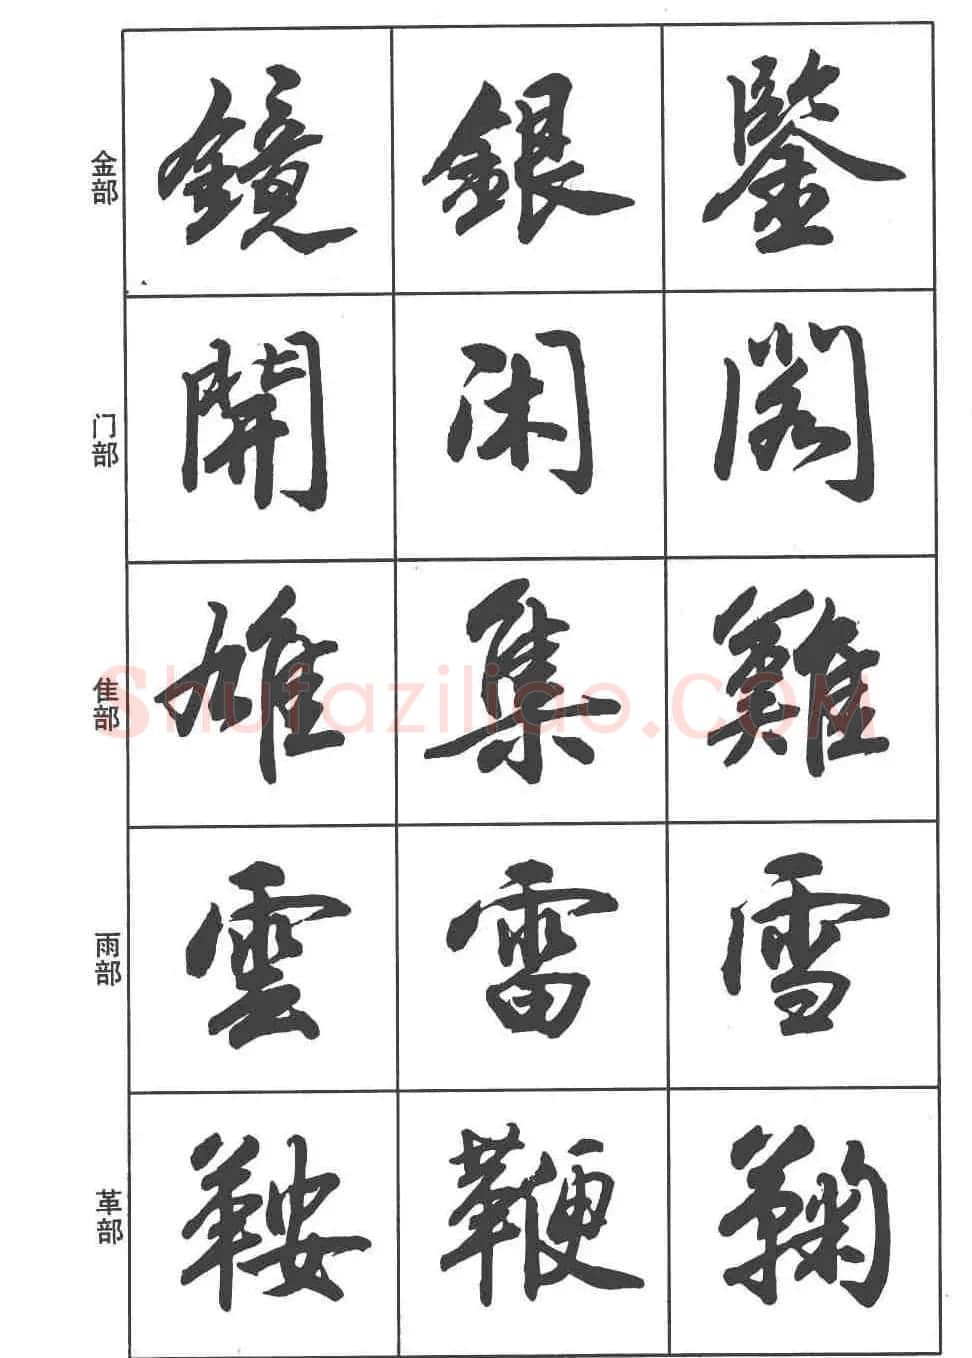 金部
鏡 銀 鑒
门部
開 闲 阁
隹部
雄 集 難
雨部
雲 雷 雪
革部
鞍 鞭 鞠
Shufaziliao.COM